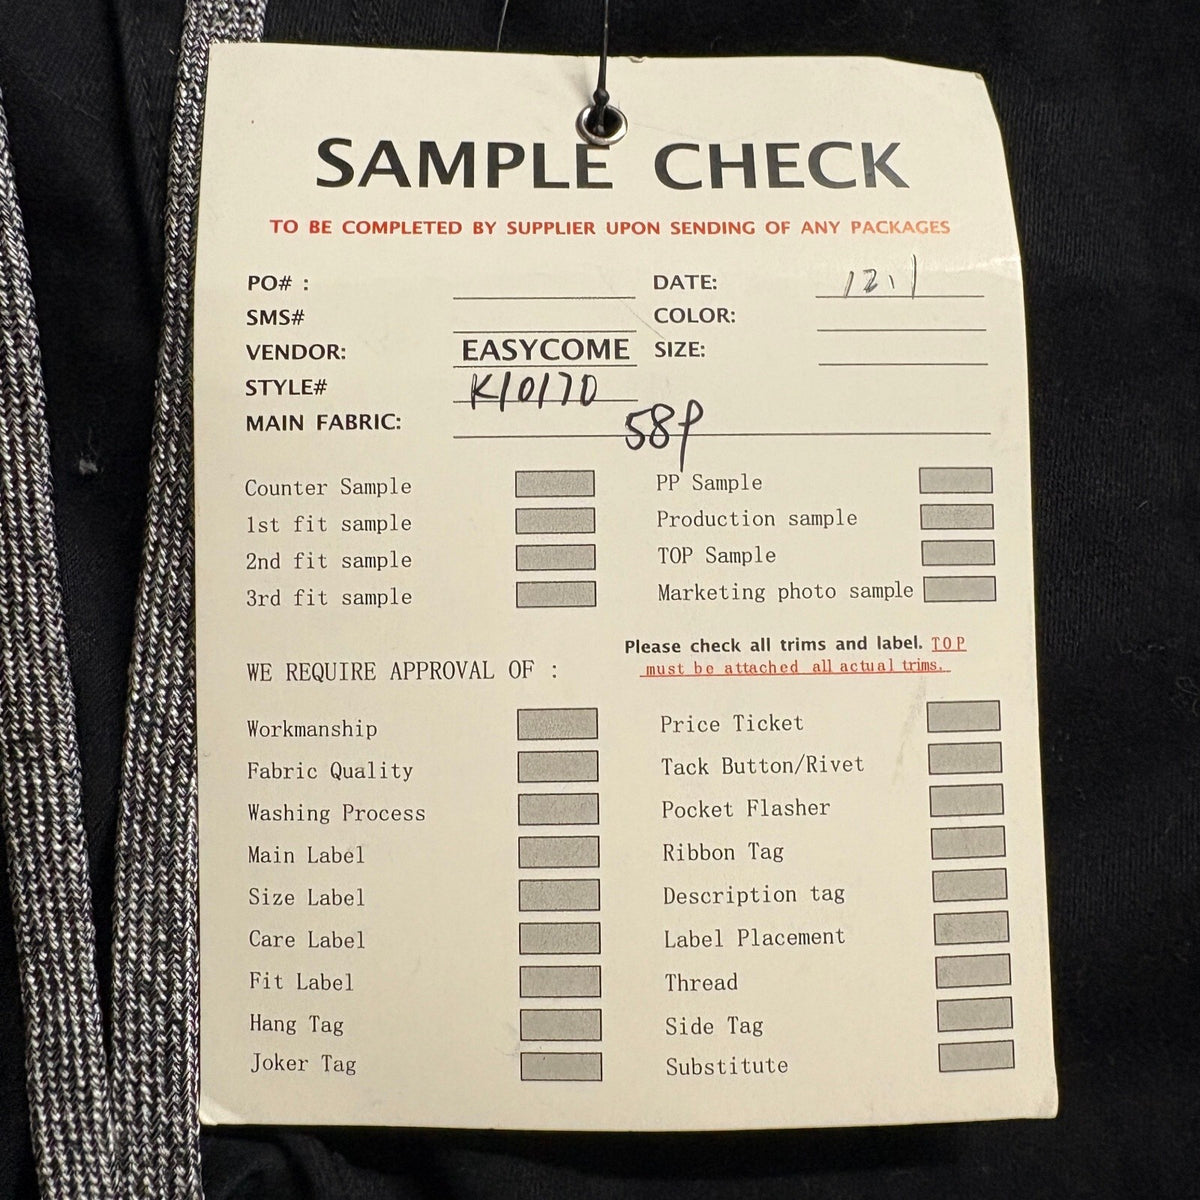 SAMPLE CHECK
TO BE COMPLETED BY SUPPLIER UPON SENDING OF ANY PACKAGES
PO# : DATE: 12.1
SMS# COLOR:
VENDOR: EASYCOME SIZE:
STYLE# K10170
MAIN FABRIC: 58P
Counter Sample PP Sample
1st fit sample Production sample
2nd fit sample TOP Sample
3rd fit sample Marketing photo sample
Please check all trims and label. TOP
must be attached all actual trims.
WE REQUIRE APPROVAL OF :
Workmanship Price Ticket
Fabric Quality Tack Button/Rivet
Washing Process Pocket Flasher
Main Label Ribbon Tag
Size Label Description tag
Care Label Label Placement
Fit Label Thread
Hang Tag Side Tag
Joker Tag Substitute